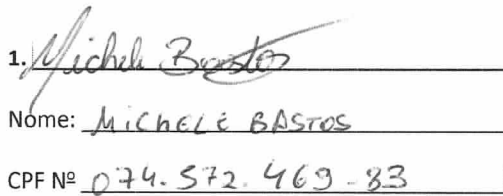 1. Michele Bastos
Nome: MiCHELE BASTOS
CPF Nº 074.572.469-83